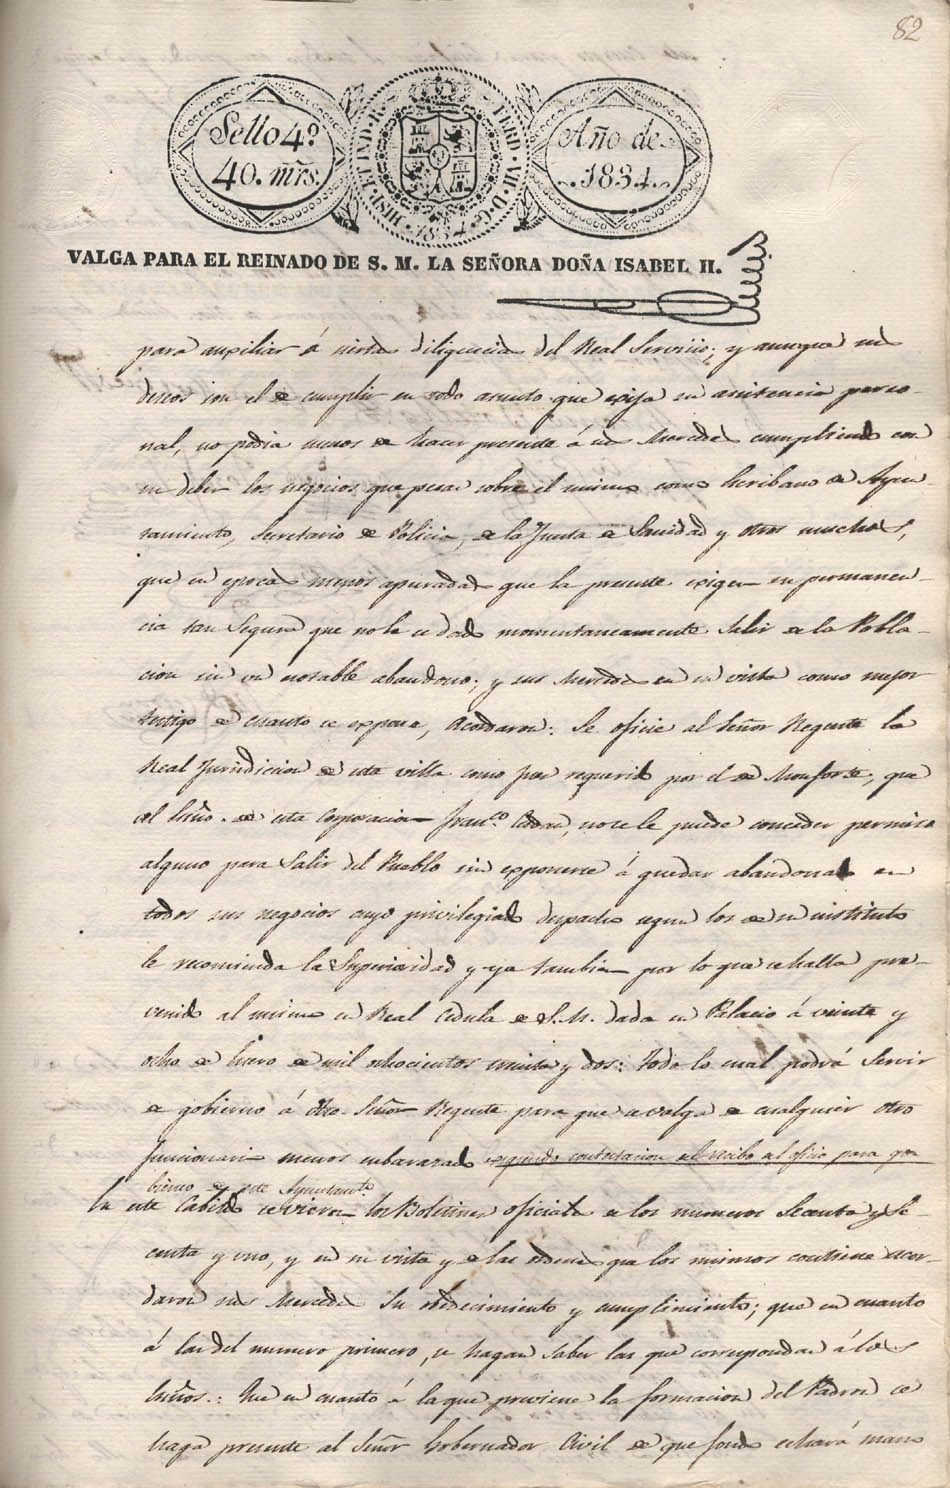 82
Sello 4º
40. mrs.
HISP. ET IND. R. FERD. VII. D. G.
1834
Año de
1834.
VALGA PARA EL REINADO DE S. M. LA SEÑORA DOÑA ISABEL II.
para auxiliar á cierta diligencia del Real Servicio; y aunque sus
deseos son el de cumplir en todo asunto que exija su asistencia perso-
nal, no podia menos de hacer presente á sus Mercedes cumpliendo con
su deber los negocios que pesan sobre el mismo como Escribano de Ayun-
tamiento, Secretario de Policia, de la Junta de Sanidad y otros muchos,
que en epocas menos apuradas que la presente exigen su permanen-
cia tan Segura que no le es dado momentaneamente Salir de la Pobla-
cion sin un notable abandono; y sus Mercedes en su vista como mejor
testigo de cuanto se expone, Acordaron: Se oficie al Señor Regente la
Real Jurisdicion de esta villa como fue requerido por el de Monforte, que
al Srño. de esta Corporacion Franco. no se le puede conceder permiso
alguno para Salir del Pueblo sin exponerse á quedar abandonados en
todos sus negocios cuyo privilegiado despacho segun los de su instituto
le recomienda la Superioridad y ya tambien por lo que se halla pre-
venido al mismo en Real Cedula de S. M. dada en Palacio á veinte y
ocho de Enero de mil ochocientos treinta y dos: Todo lo cual podrá Servir
de gobierno á dho. Señor Regente para que se valga de cualquier otro
funcionario menos embarazado exigiendo contestacion del recibo del oficio para go-
bierno de este Ayuntamto.
En este Cabildo se vieron los Boletines oficiales de los numeros Sesenta y Se-
senta y uno, y en su vista y de las ordenes que los mismos contiene acor-
daron sus Mercedes Su obedecimiento y cumplimiento; que en cuanto
á las del numero primero, se hagan saber las que correspondan á los
Srños.: Que en cuanto á la que previene la formacion del Padron se
haga presente al Señor Gobernador Civil de que fondo echará mano